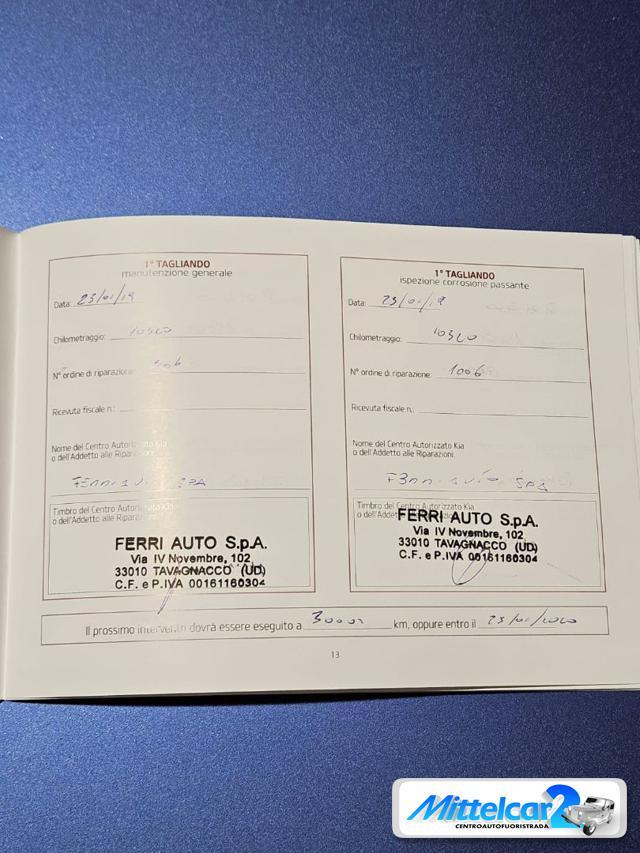 1° TAGLIANDO
manutenzione generale
Data: 23/01/19
Chilometraggio: 10320
N° ordine di riparazione:
Ricevuta fiscale n.:
Nome del Centro Autorizzato Kia
o dell'Addetto alle Riparazioni:
SPA
Timbro del Centro Autorizzato Kia
o dell'Addetto alle Riparazioni
FERRI AUTO S.p.A.
Via IV Novembre, 102
33010 TAVAGNACCO (UD)
C.F. e P.IVA 00161160304
1° TAGLIANDO
ispezione corrosione passante
Data: 23/01/19
Chilometraggio: 10320
N° ordine di riparazione: 1006
Ricevuta fiscale n.:
Nome del Centro Autorizzato Kia
o dell'Addetto alle Riparazioni:
Timbro del Centro Autorizzato Kia
o dell'Addetto
FERRI AUTO S.p.A.
Via IV Novembre, 102
33010 TAVAGNACCO (UD)
C.F. e P.IVA 00161160304
Il prossimo intervento dovrà essere eseguito a 30000 km, oppure entro il 23/01/2020
13
Mittelcar2
CENTROAUTOFUORISTRADA